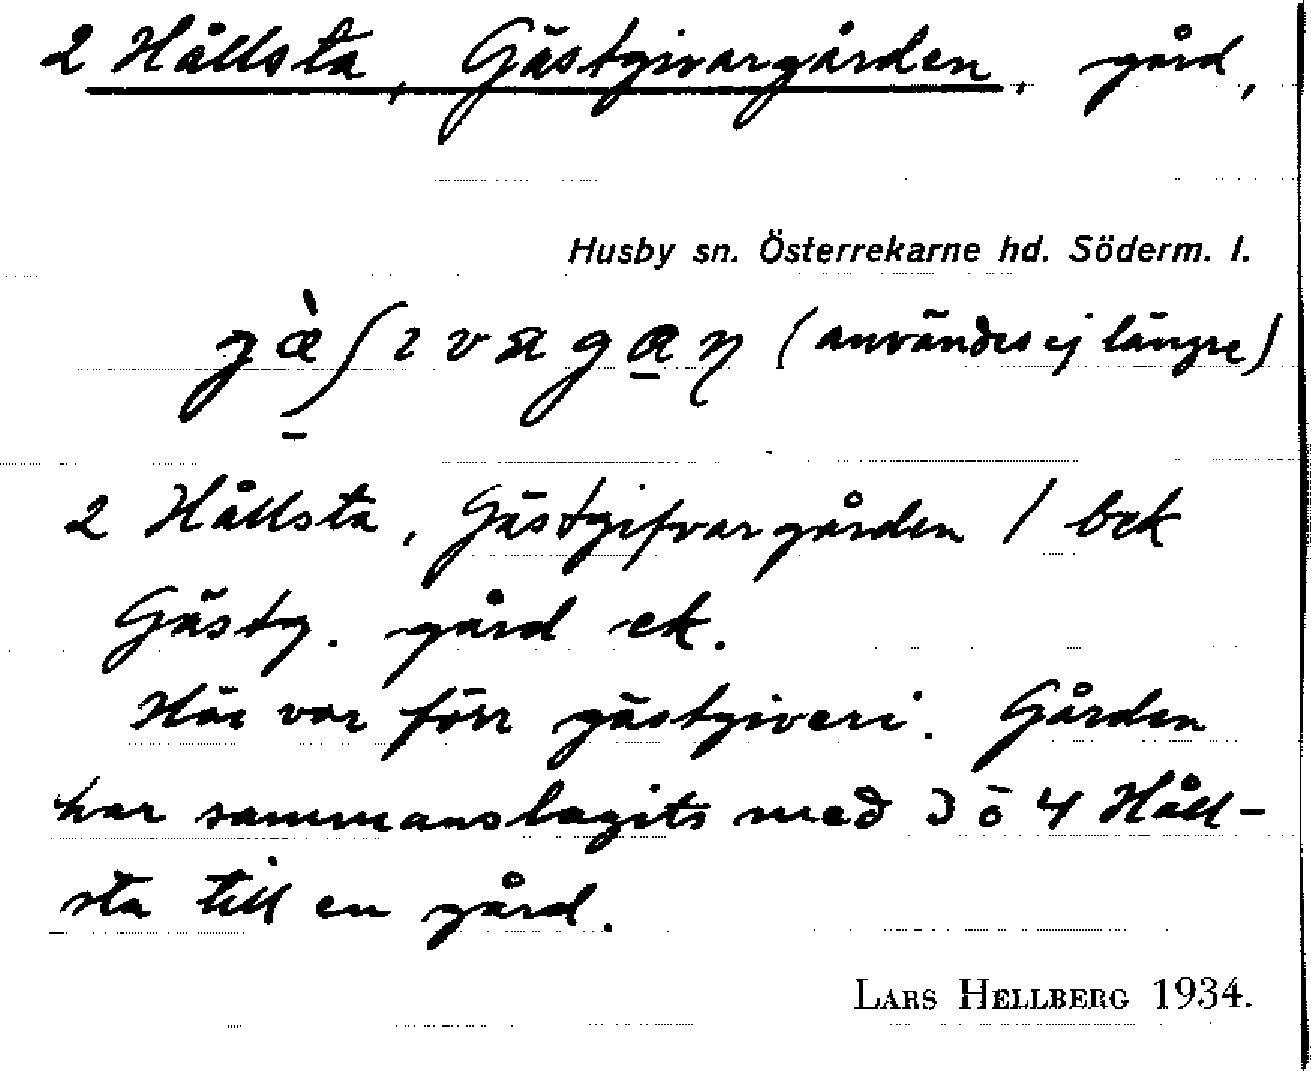 2 Hållsta, Gästgivargården, gård,
Husby sn. Österrekarne hd. Söderm. l.
(användes ej längre)
2 Hållsta, Gästgifvargården / bek
Gästg. gård ek.
Här var förr gästgiveri. Gården
har sammanslagits med 3 o 4 Håll-
sta till en gård.
LARS HELLBERG 1934.